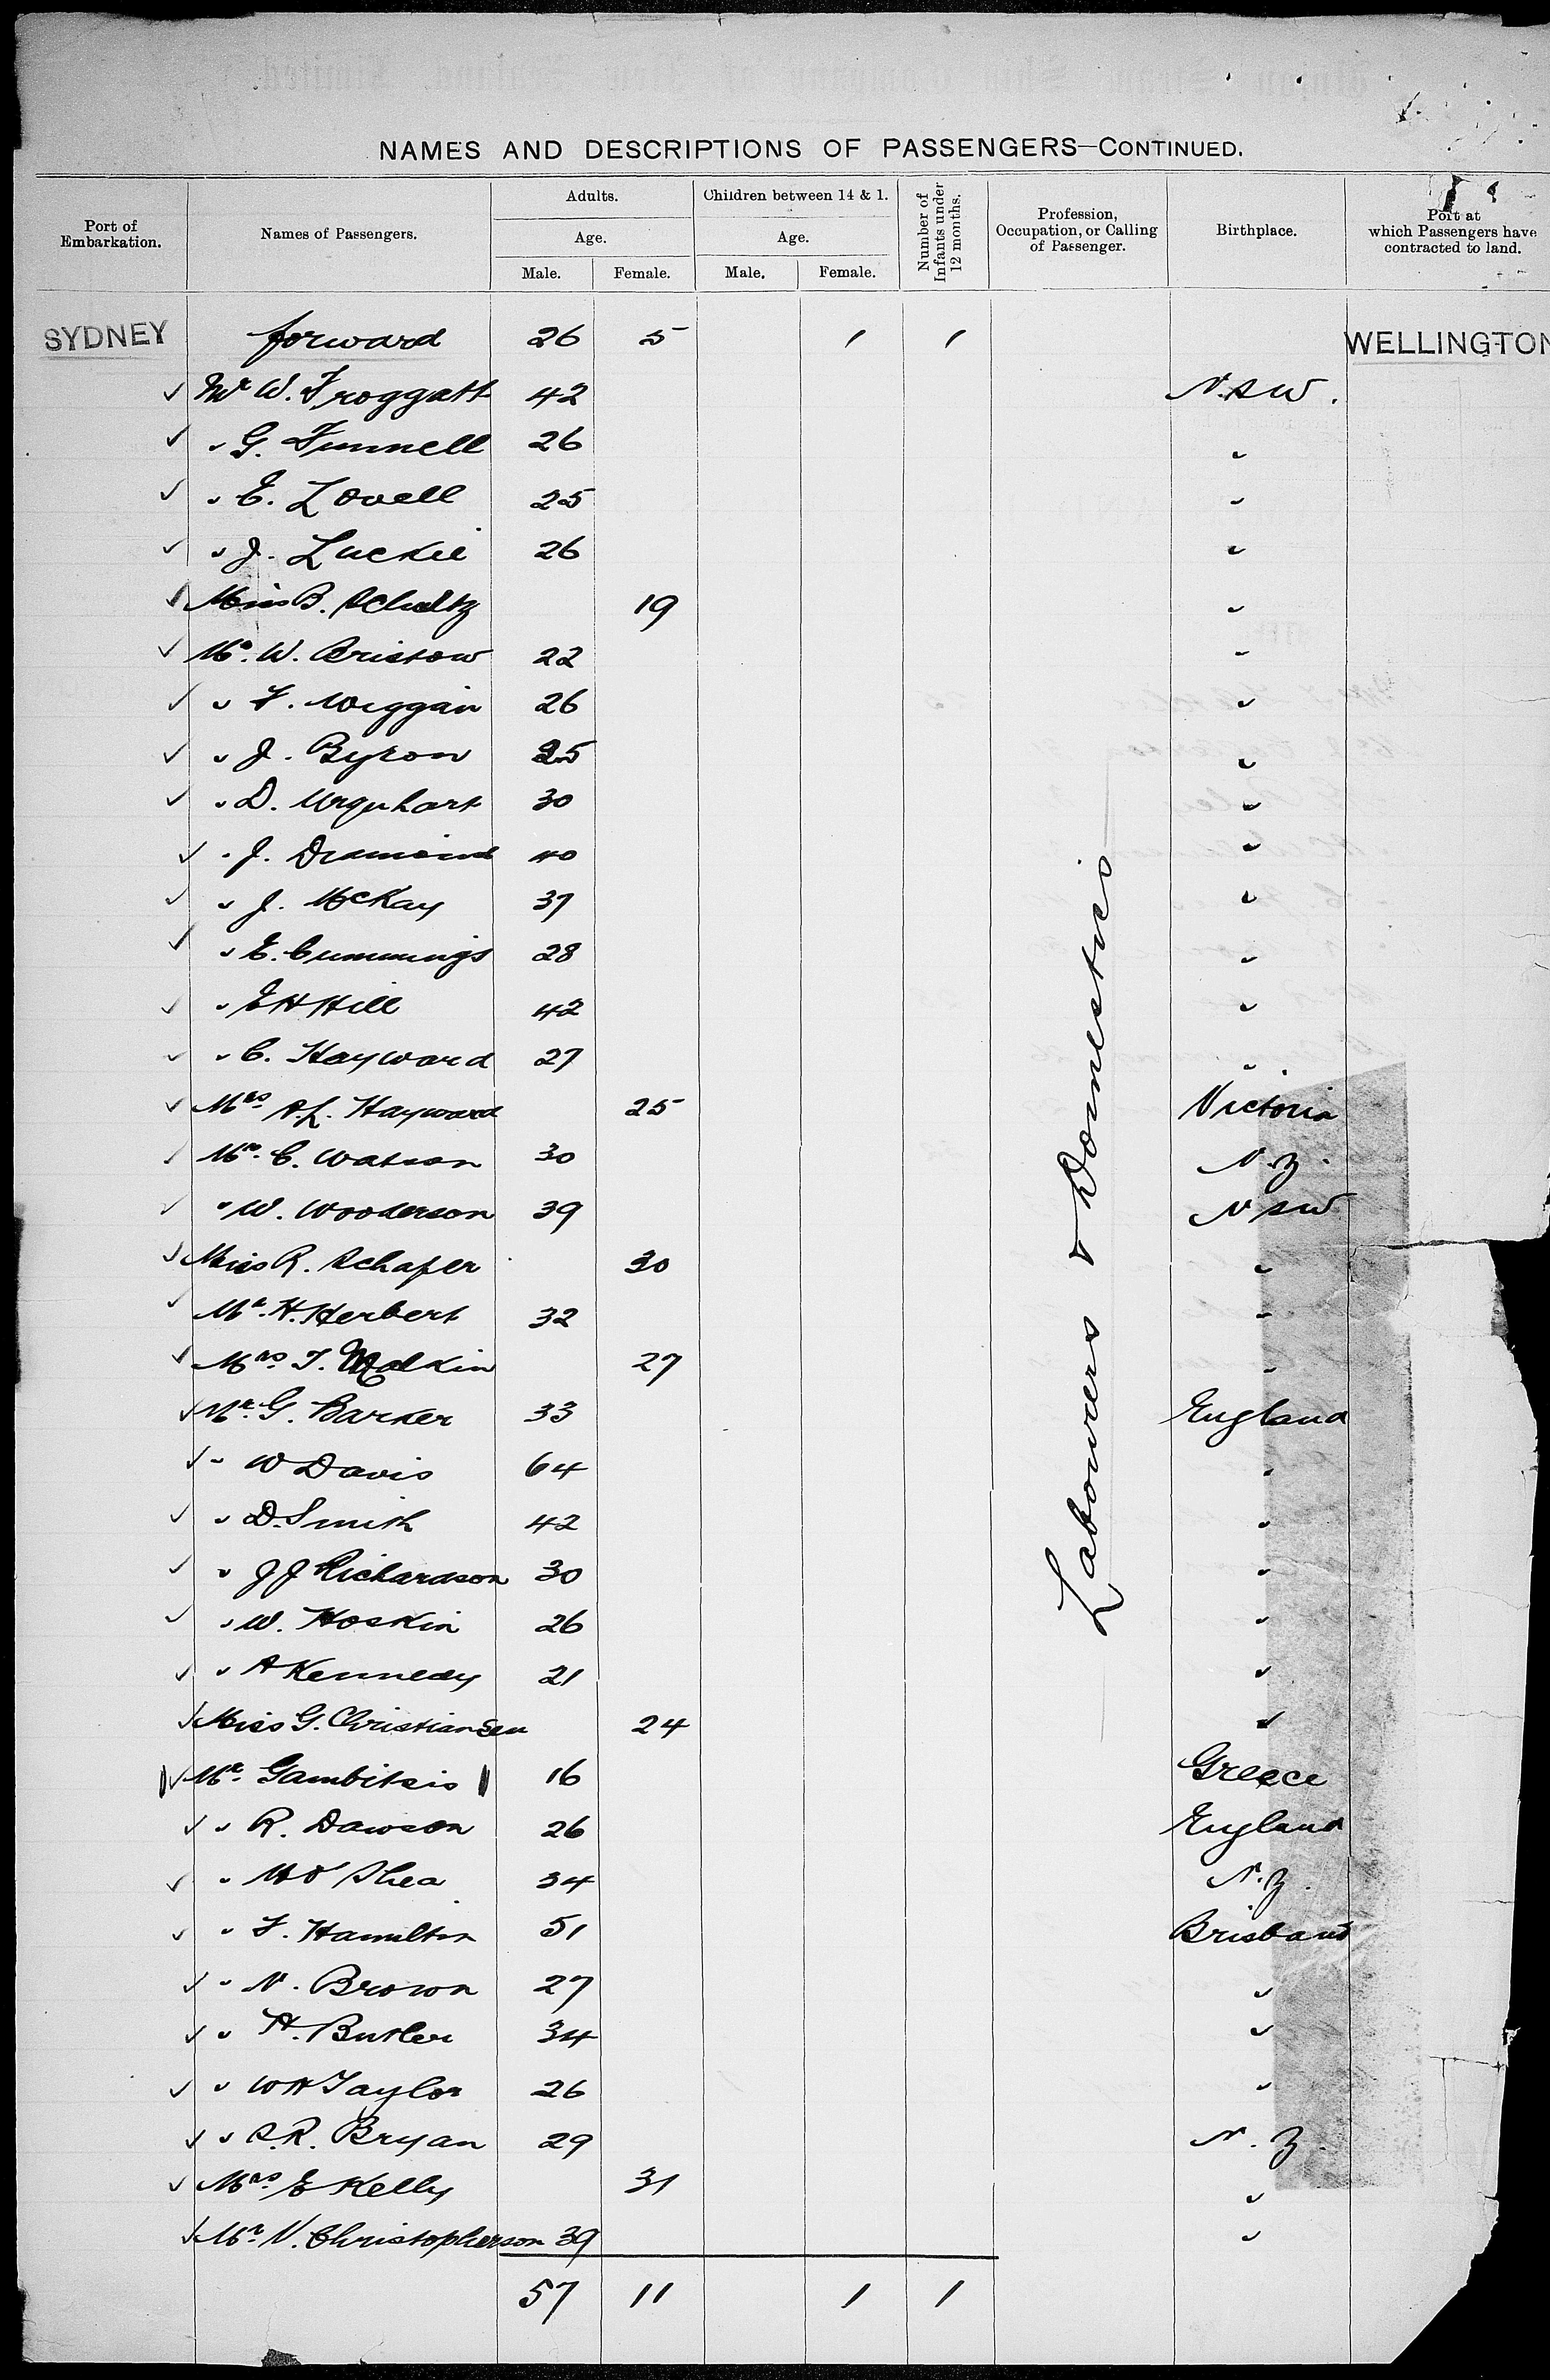 NAMES AND DESCRIPTIONS OF PASSENGERS—CONTINUED.
Port of Embarkation. Names of Passengers. Adults. Age. Male. Female. Children between 14 & 1. Age. Male. Female. Number of Infants under 12 months. Profession, Occupation, or Calling of Passenger. Birthplace. Port at which Passengers have contracted to land.
SYDNEY forward 26 5 1 1 WELLINGTON
✓ Mr W. Froggatt 42 N.S.W.
✓ " G. Funnell 26 "
✓ " E. Lovell 25 "
✓ " J. Luckie 26 "
✓ Miss B. Schultz 19 "
✓ Mr. W. Bristow 22 "
✓ " F. Wiggan 26 "
✓ " J. Byron 25 "
✓ " D. Urquhart 30 "
✓ " J. Diamond 40 "
✓ " J. McKay 37 "
✓ " E. Cummings 28 "
✓ " E H Hill 42 "
✓ " C. Hayward 27 "
✓ Mrs A.L. Hayward 25 Victoria
✓ Mr. C. Watson 30 N.Z.
✓ " W. Wooderson 39 N S W
✓ Miss R. Schafer 30 "
✓ Mr. H. Herbert 32 "
✓ Mrs. T. Malkin 27 "
✓ Mr. G. Barker 33 England
✓ " W Davis 64 "
✓ " D. Smith 42 "
✓ " J J Richardson 30 "
✓ " W. Hoskin 26 "
✓ " A Kennedy 21 "
✓ Miss G. Christiansen 24 "
✓ Mr. Gambitsis 16 Greece
✓ " R. Dawson 26 England
✓ " O'Shea 34 N.Z.
✓ " F. Hamilton 51 Brisbane
✓ " N. Brown 27 "
✓ " H. Butler 34 "
✓ " W H Taylor 26 "
✓ " S.R. Bryan 29 N.Z.
✓ Mrs. E Kelly 31 "
✓ Mr. V. Christopherson 39 "
57 11 1 1
Labourers & Domestics